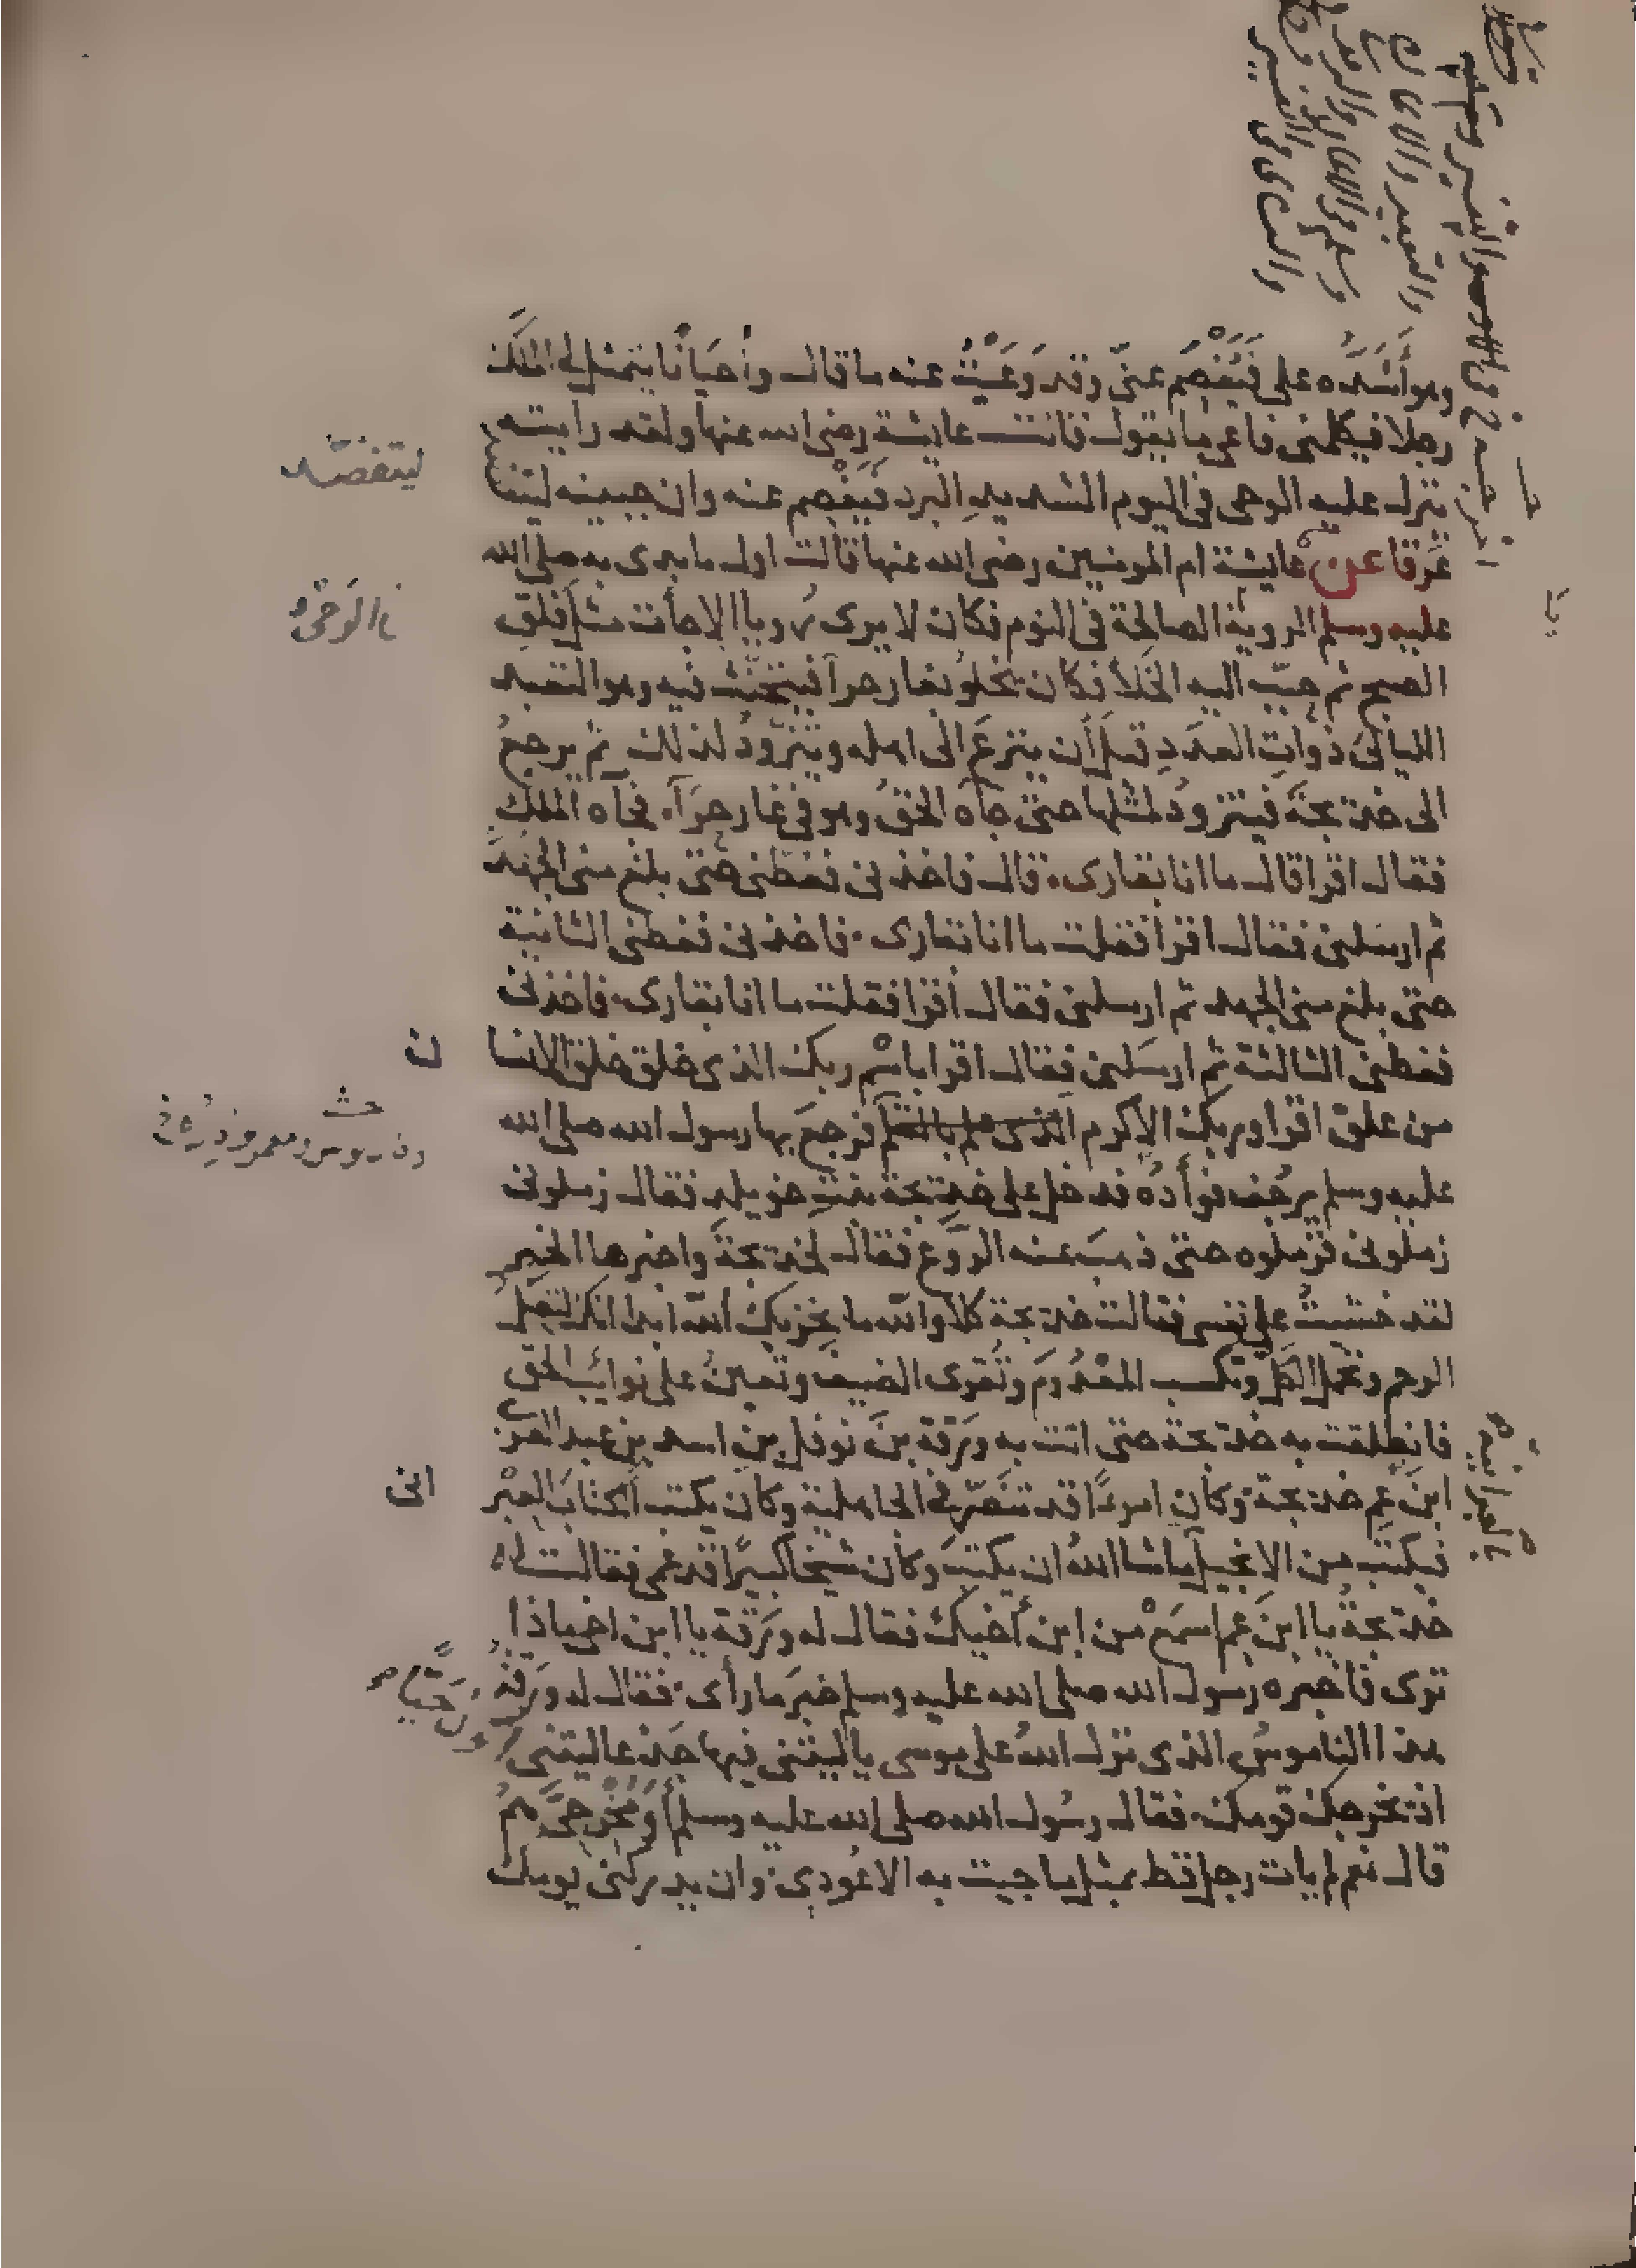 وهو أَشَدُّه على فَيَفْصِم عنى وقد وَعَيْتُ عنه ما قال وأحيانًا يتمثل لى الملَك
رجلا فيكلمنى فاعى ما يقول قالت عايشة رضى الله عنها ولقد رايته
ينزل عليه الوحى فى اليوم الشديدِ البرد فيَفْصِم عنه وان جبينه ليتفصد
عَرَقا عن عايشة ام المومنين رضى الله عنها قالت اول ما بدى به صلى الله
عليه وسلم الروية الصالحة فى النوم فكان لا يرى رُويا الا جأت مثل فلق
الصبح ثم حبّب اليه الخلأ فكان يخلُو بغار حرآ فيتحنّث فيه وهو التعبد
الليالىَ ذواتِ العدَدِ قبل أن ينزعَ الى اهله ويتزودُ لذلك ثم يرجعُ
الى خديجةَ فيتزودُ لمثلها حتى جآه الحقُ وهو فى غار حرَآء فجآه الملك
فقال اقرا قال ما انا بقارى. قال فاخذنى فغطّنى حتى بلغ منى الجهد
ثم ارسَلنى فقال اقرا فقلت ما انا بقارى. فاخذنى فغطنى الثانية
حتى بلغ منى الجهد ثم ارسلنى فقال أقرا فقلت ما انا بقارى. فاخذنى
فغطنى الثالثة ثم ارسَلنى فقال اقرا باسْمِ ربك الذى خلق خلق الانسا ن
من علقْ اقرا وربك الاكرم الذى علم بالقلم فرجعَ بها رسول الله صلى الله
عليه وسلم يرجُف فوأدُه فدخل على خديجة بنت خويلد فقال زملونى
زملونى فزملوه حتى ذهبَ عنه الرَّوع فقال لخديجةَ واخبرها الخبر
لقد خشيتُ على نفسى فقالت خديجة كلا والله ما يخزيك الله ابدا انك لتصل
الرحم وتحمل الكلّ وتكسب المعْدُومَ وتُقرى الضيف وتعينُ على نوائب الحق
فانطلقت به خديجة حتى اتت به ورَقة بنَ نوفل بن اسد بن عبد العزى
ابن عم خديجة وكان امرءًا قد تنَصّر فى الجاهلية وكان يكتب الكتابَ العِبْر انى
فيكتب من الانجيل ما شا اللهُ ان يكتبَ وكان شيخا كبيرًا قد عمى فقالت له
خديجةُ يا ابنَ عم اسمَعْ من ابن أخيك فقال له ورَقة يا ابن اخى ماذا
ترى فاخبره رسول الله صلى الله عليه وسلم خبرَ ما رأى. فقال له ورَقةُ
هذا الناموسُ الذى نزل اللهُ على موسى ياليتنى فيها جَذعا ليتنى اكون حَيًّا
اذ يخرجك قومك. فقال رسُول الله صلى الله عليه وسلم أَوَ مُخْرِجِىَّ هُمُ
قال نعم لم يات رجل قط بمثل ما جيت به الا عُودِى. وان يدركنى يومك
ليتفصّد
الوَحْىُ
بالعبرانية